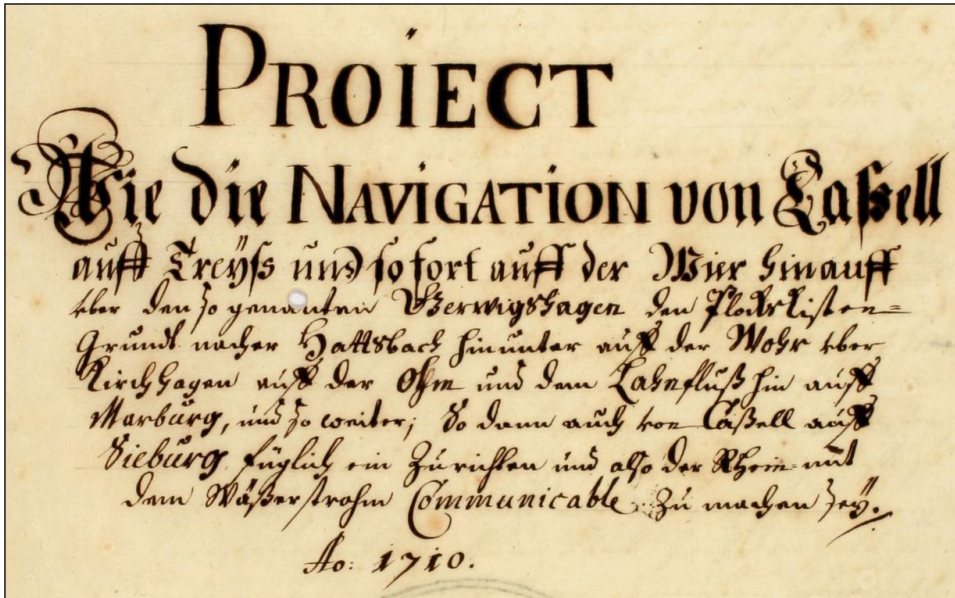 PROIECT
Wie die NAVIGATION von Caßell
auff Treÿß und so fort auff der Wier hinauff
über den so genanten Gerwigshagen den Plockristen=
Grundt nacher Hattsbach hinunter auff der Wohr über
Kirchhagen auff der Ohm und dem Lahnfluß hin auff
Marburg, und so weiter; So dann auch von Caßell auff
Sieburg füglich ein Zurichten und also der Rhein mit
dem Wäßerstrohm Communicable Zu machen seÿ.
Ao: 1710.